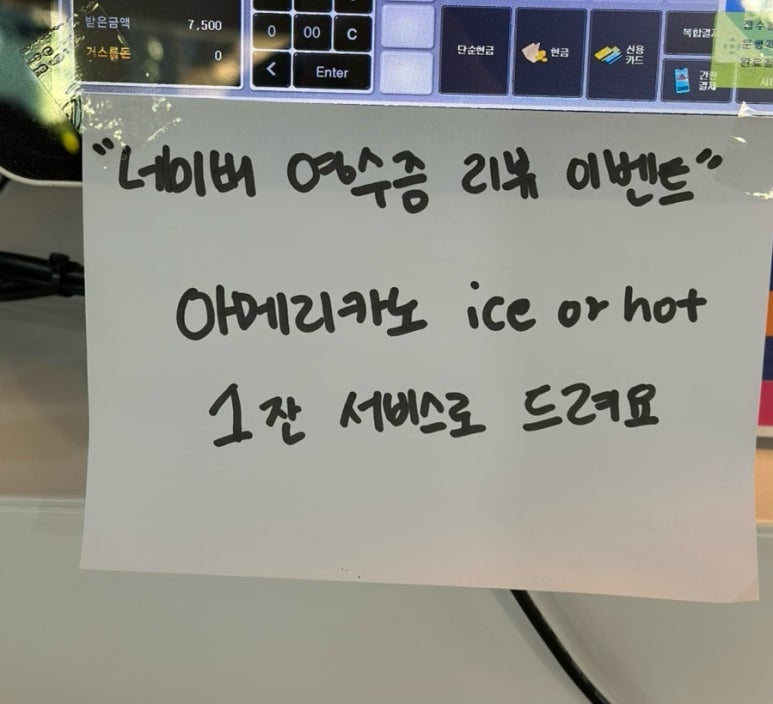 받은금액 7,500
거스름돈 0
0 00 C
< Enter
단순현금
현금
신용
카드
복합결제
간편
결제
"네이버 영수증 리뷰 이벤트"
아메리카노 ice or hot
1잔 서비스로 드려요